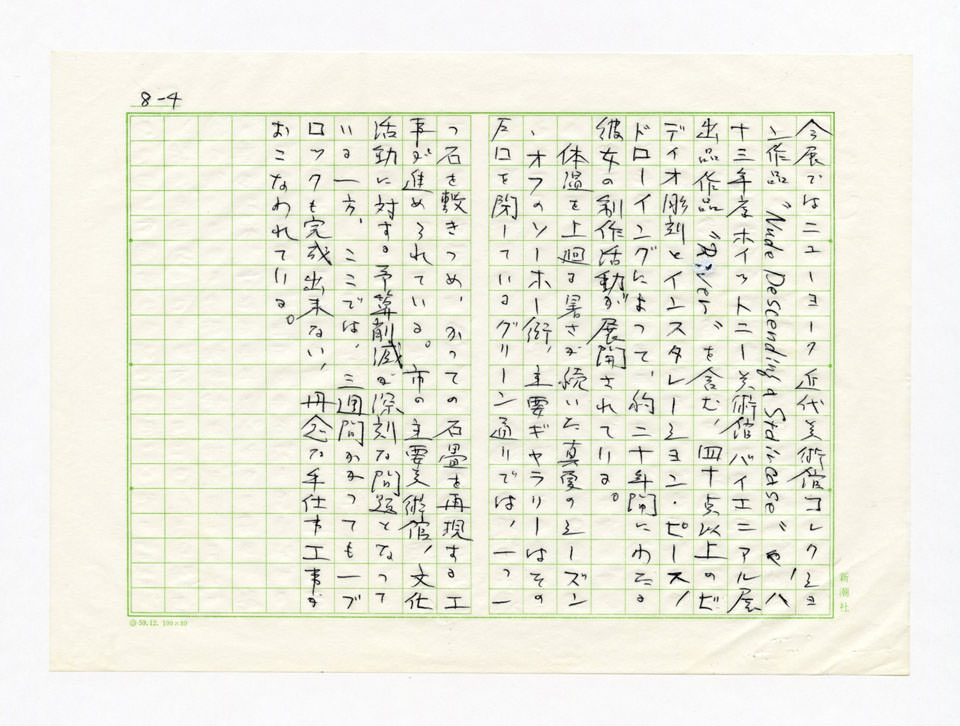 8-4
今展ではニューヨーク近代美術館コレクショ
ン作品“Nude Descending a Staircase”や、八
十三年度ホイットニー美術館バイエニアル展
出品作品“River”を含む、四十点以上のビ
ディオ彫刻とインスタレーション・ピース、
ドローイングによって、約二十年間にわたる
彼女の制作活動が展開されている。
体温を上廻る暑さが続いた真夏のシーズン
・オフのソーホー街、主要ギャラリーはその
戸口を閉しているグリーン通りでは、一つ一
つ石を敷きつめ、かつての石畳を再現する工
事が進められている。市の主要美術館、文化
活動に対する予算削減が深刻な問題となって
いる一方、ここでは、三週間かかっても一ブ
ロックも完成出来ない、丹念な手仕事工事が
おこなわれている。
新潮社
59.12. 100×80